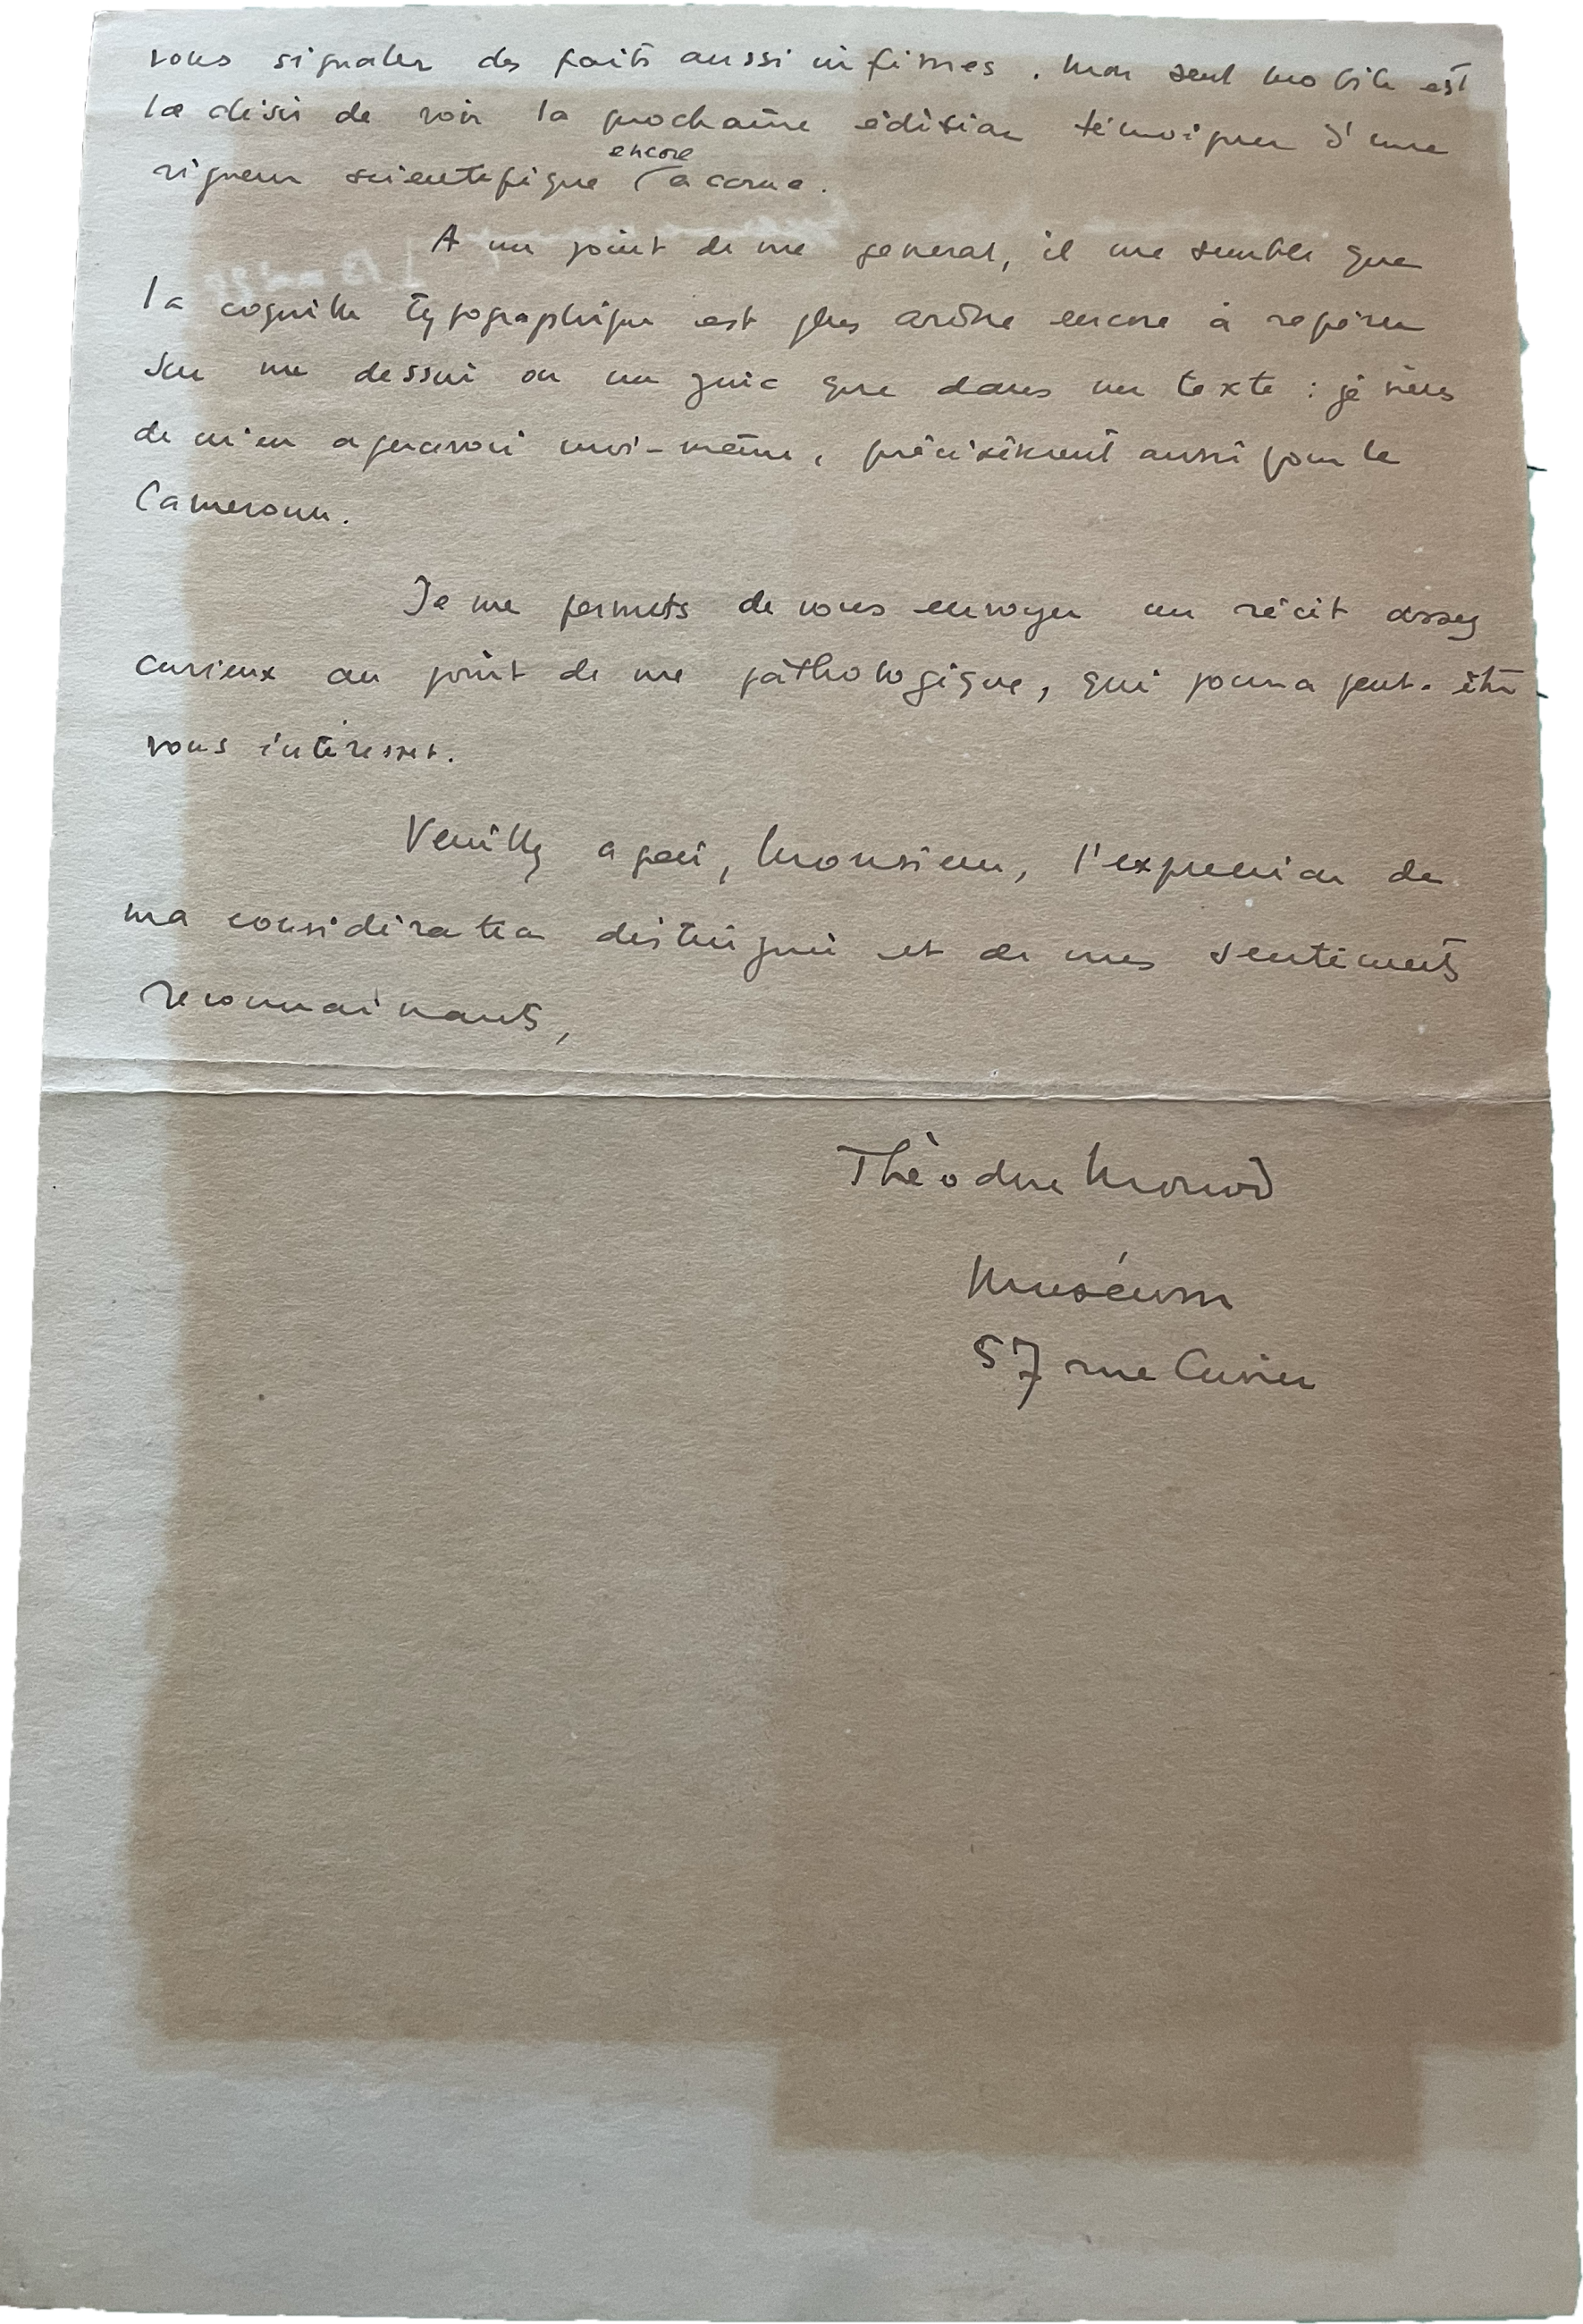 vous signaler des faits aussi infimes. Mon seul mobile est
le désir de voir la prochaine édition témoigner d'une
encore
rigueur scientifique accrue.
A un point de vue général, il me semble que
la coquille typographique est plus ardue encore à repérer
sur un dessin ou un que dans un texte : je viens
de m'en apercevoir moi-même, précisément aussi pour le
Cameroun.
Je me permets de vous envoyer un récit assez
curieux au point de vue pathologique, qui pourra peut-être
vous intéresser.
Veuillez agréer, Monsieur, l'expression de
ma considération distinguée et de mes sentiments
reconnaissants,
Théodore Monod
Muséum
57 rue Cuvier